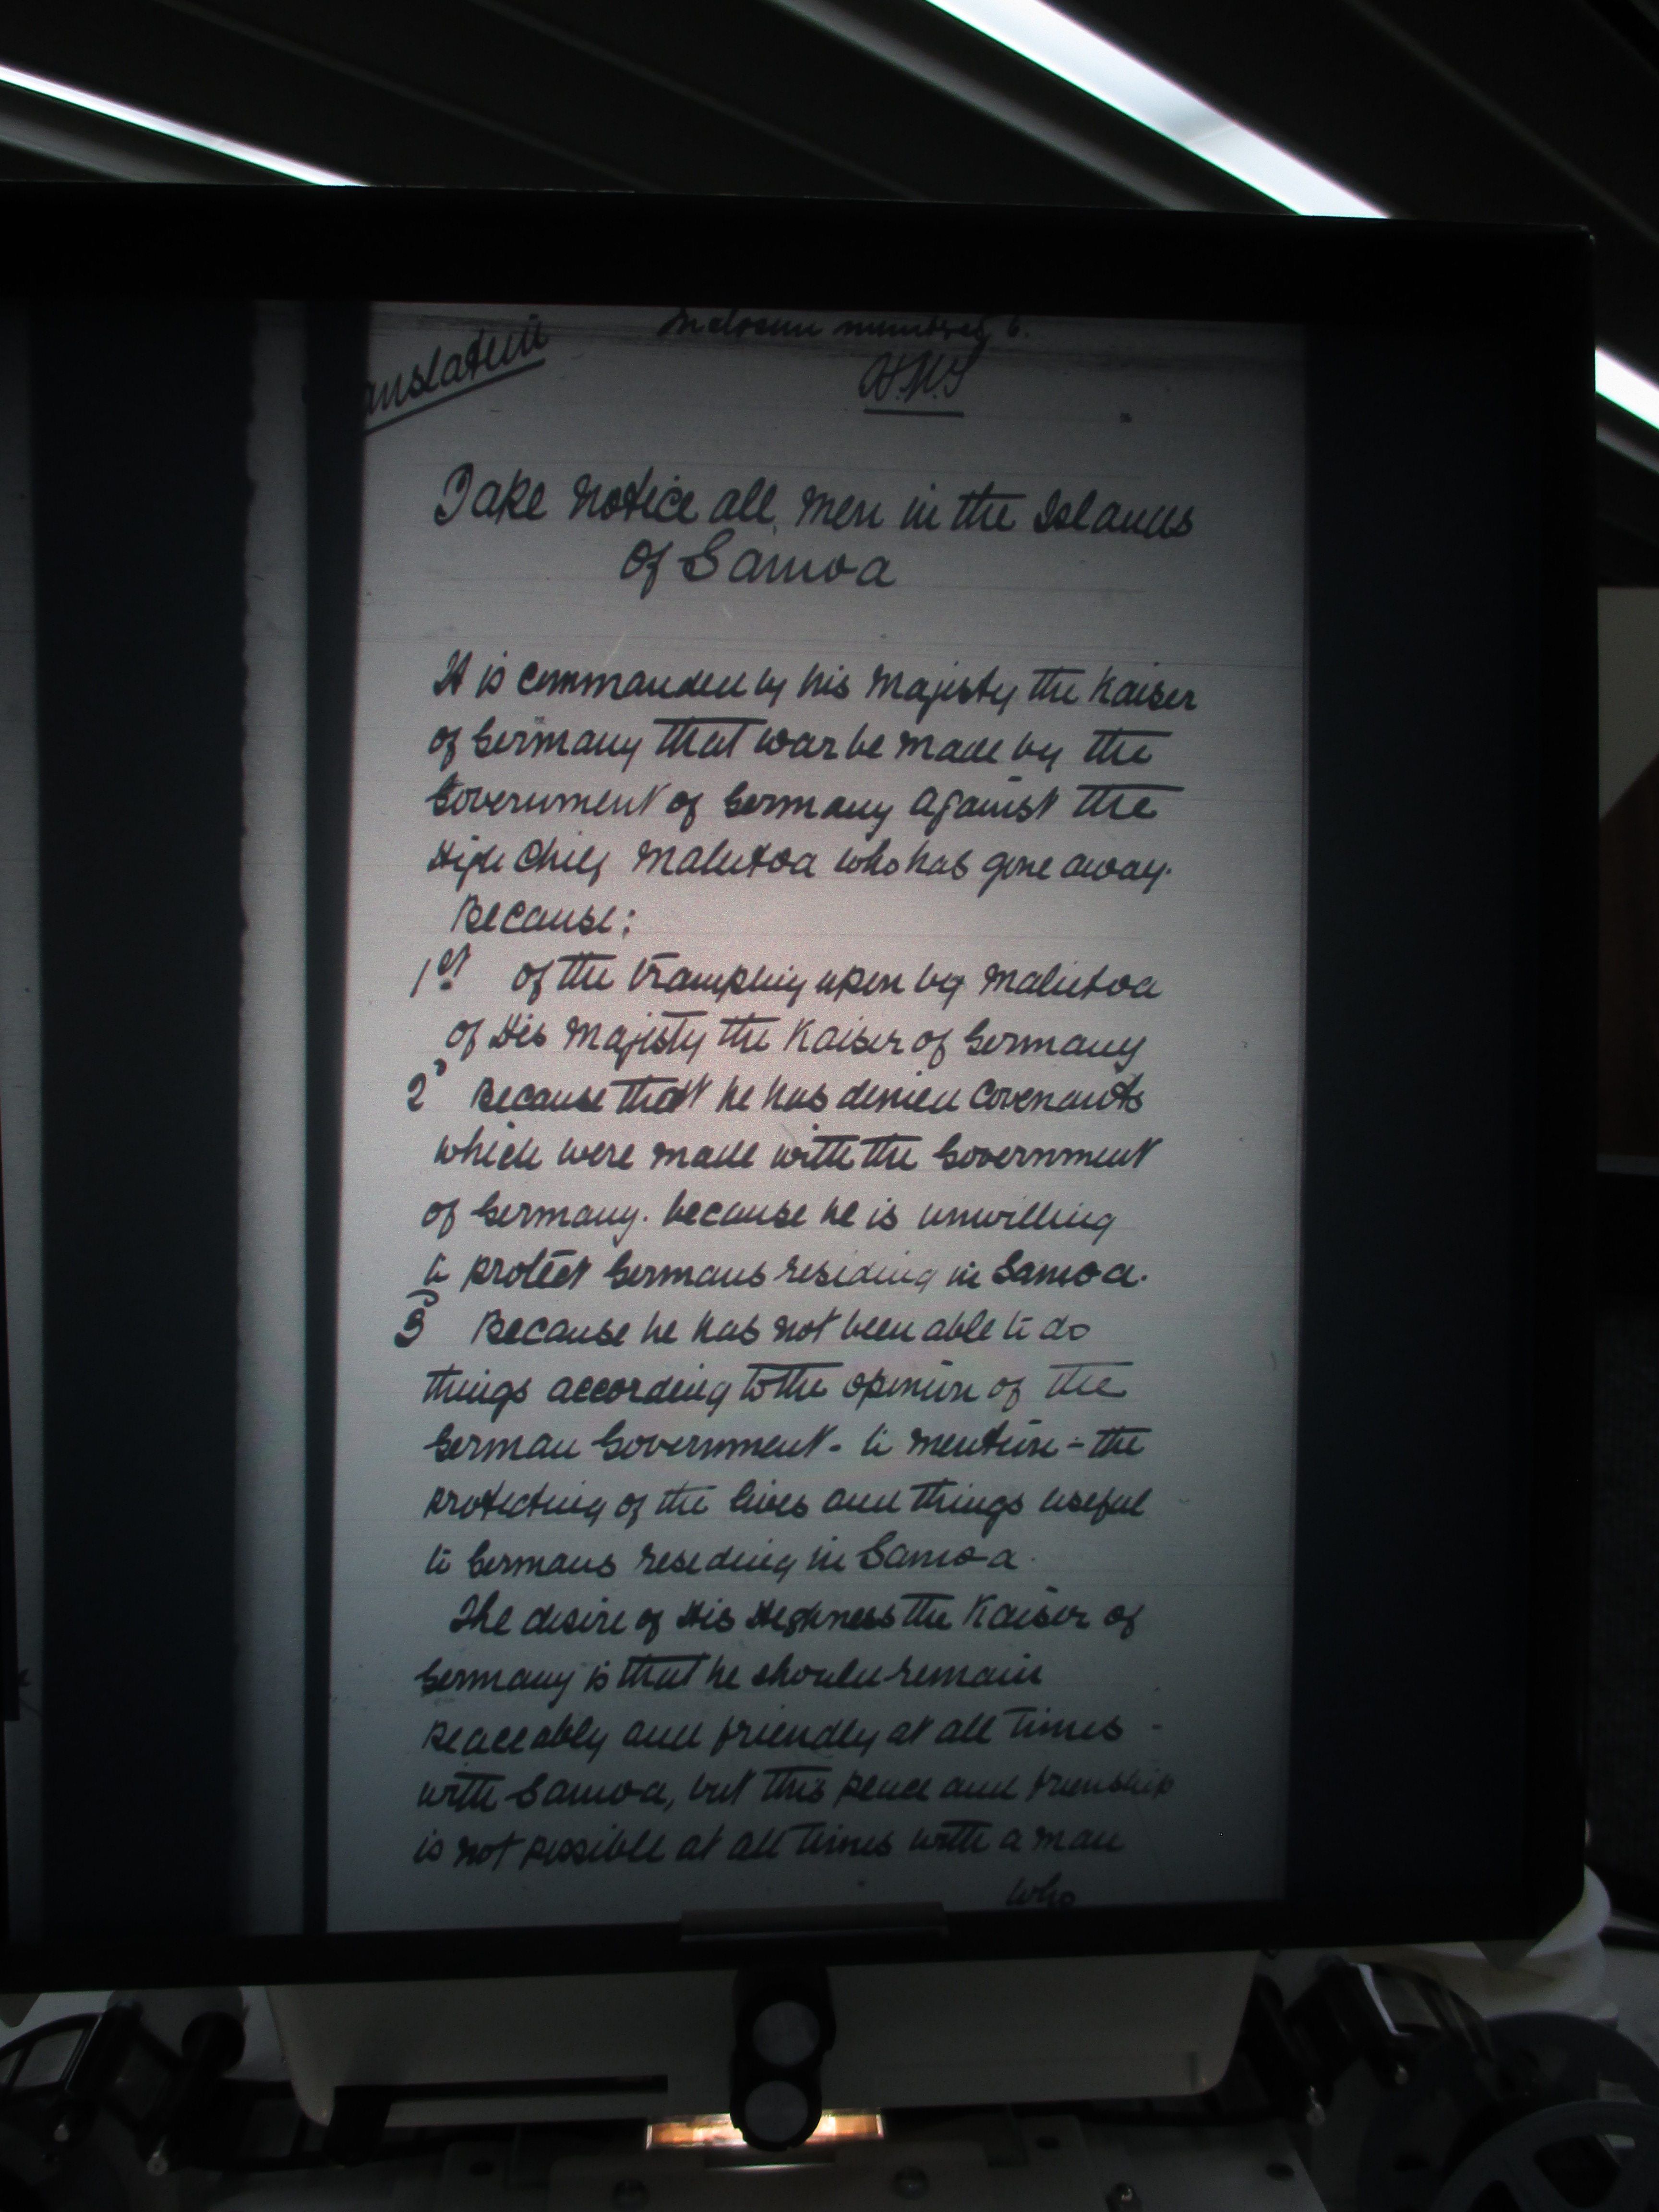 anslation
Inclosure number 6.
Take Notice all men in the Islands
of Samoa
It is commanded by his Majesty the Kaiser
of Germany that war be made by the
Government of Germany against the
High Chief Malietoa who has gone away.
Because:
1st of the trampling upon by Malietoa
of His Majesty the Kaiser of Germany
2 Because that he has denied covenants
which were made with the Government
of Germany. because he is unwilling
to protect Germans residing in Samoa.
3 Because he has not been able to do
things according to the opinion of the
German Government - to mention - the
protecting of the lives and things useful
to Germans residing in Samoa.
The desire of His Highness the Kaiser of
Germany is that he should remain
peaceably and friendly at all times -
with Samoa, but this peace and frienship
is not possible at all times with a man
who